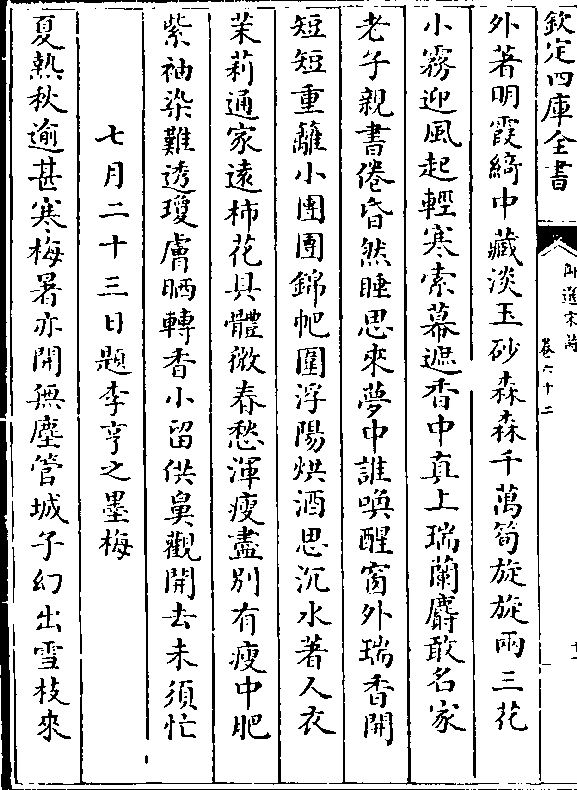 欽定四庫全書
御選宋詩
卷六十二
外著明霞綺中藏淡玉砂森森千萬筍旋旋兩三花
小霧迎風起輕寒索幕遮香中真上瑞蘭麝敢名家
老子親書倦昏然睡思來夢中誰喚醒窗外瑞香開
短短重籬小團團錦帊圍浮陽烘酒思沉水著人衣
茉莉通家遠柿花具體微春愁渾瘦盡別有瘦中肥
紫袖染難透瓊膚晒轉香小留供鼻觀開去未須忙
七月二十三日題李亨之墨梅
夏熱秋逾甚寒梅暑亦開無塵管城子幻出雪枝來